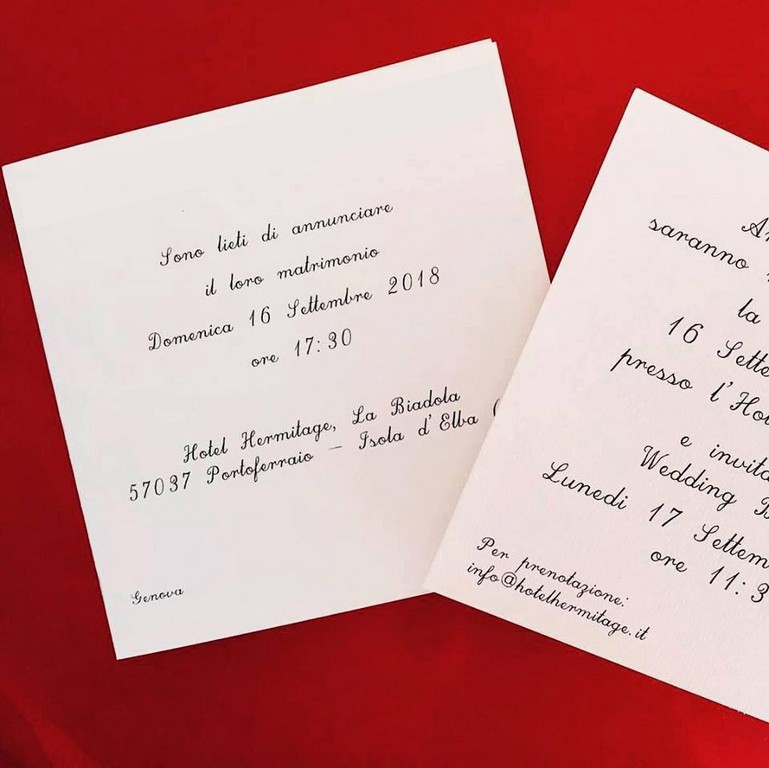 Sono lieti di annunciare
il loro matrimonio
Domenica 16 Settembre 2018
ore 17:30
Hotel Hermitage, La Biadola
57037 Portoferraio – Isola d'Elba (
Genova
saranno
la
16 Sette
presso l'Ho
e invita
Wedding B
Lunedi 17 Settem
ore 11:3
Per prenotazione:
info@hotelhermitage.it